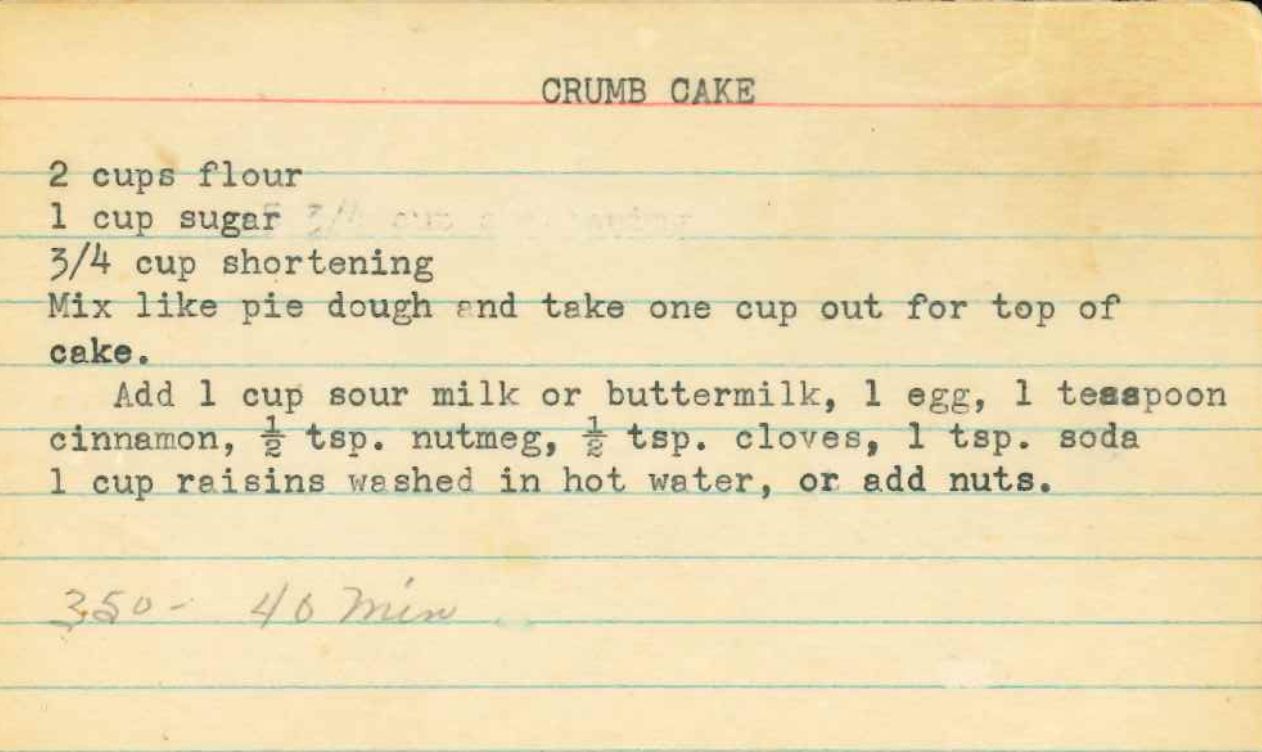 CRUMB CAKE
2 cups flour
1 cup sugar
3/4 cup shortening
Mix like pie dough and take one cup out for top of
cake.
Add 1 cup sour milk or buttermilk, 1 egg, 1 teaspoon
cinnamon, ½ tsp. nutmeg, ½ tsp. cloves, 1 tsp. soda
1 cup raisins washed in hot water, or add nuts.
350- 40 Min